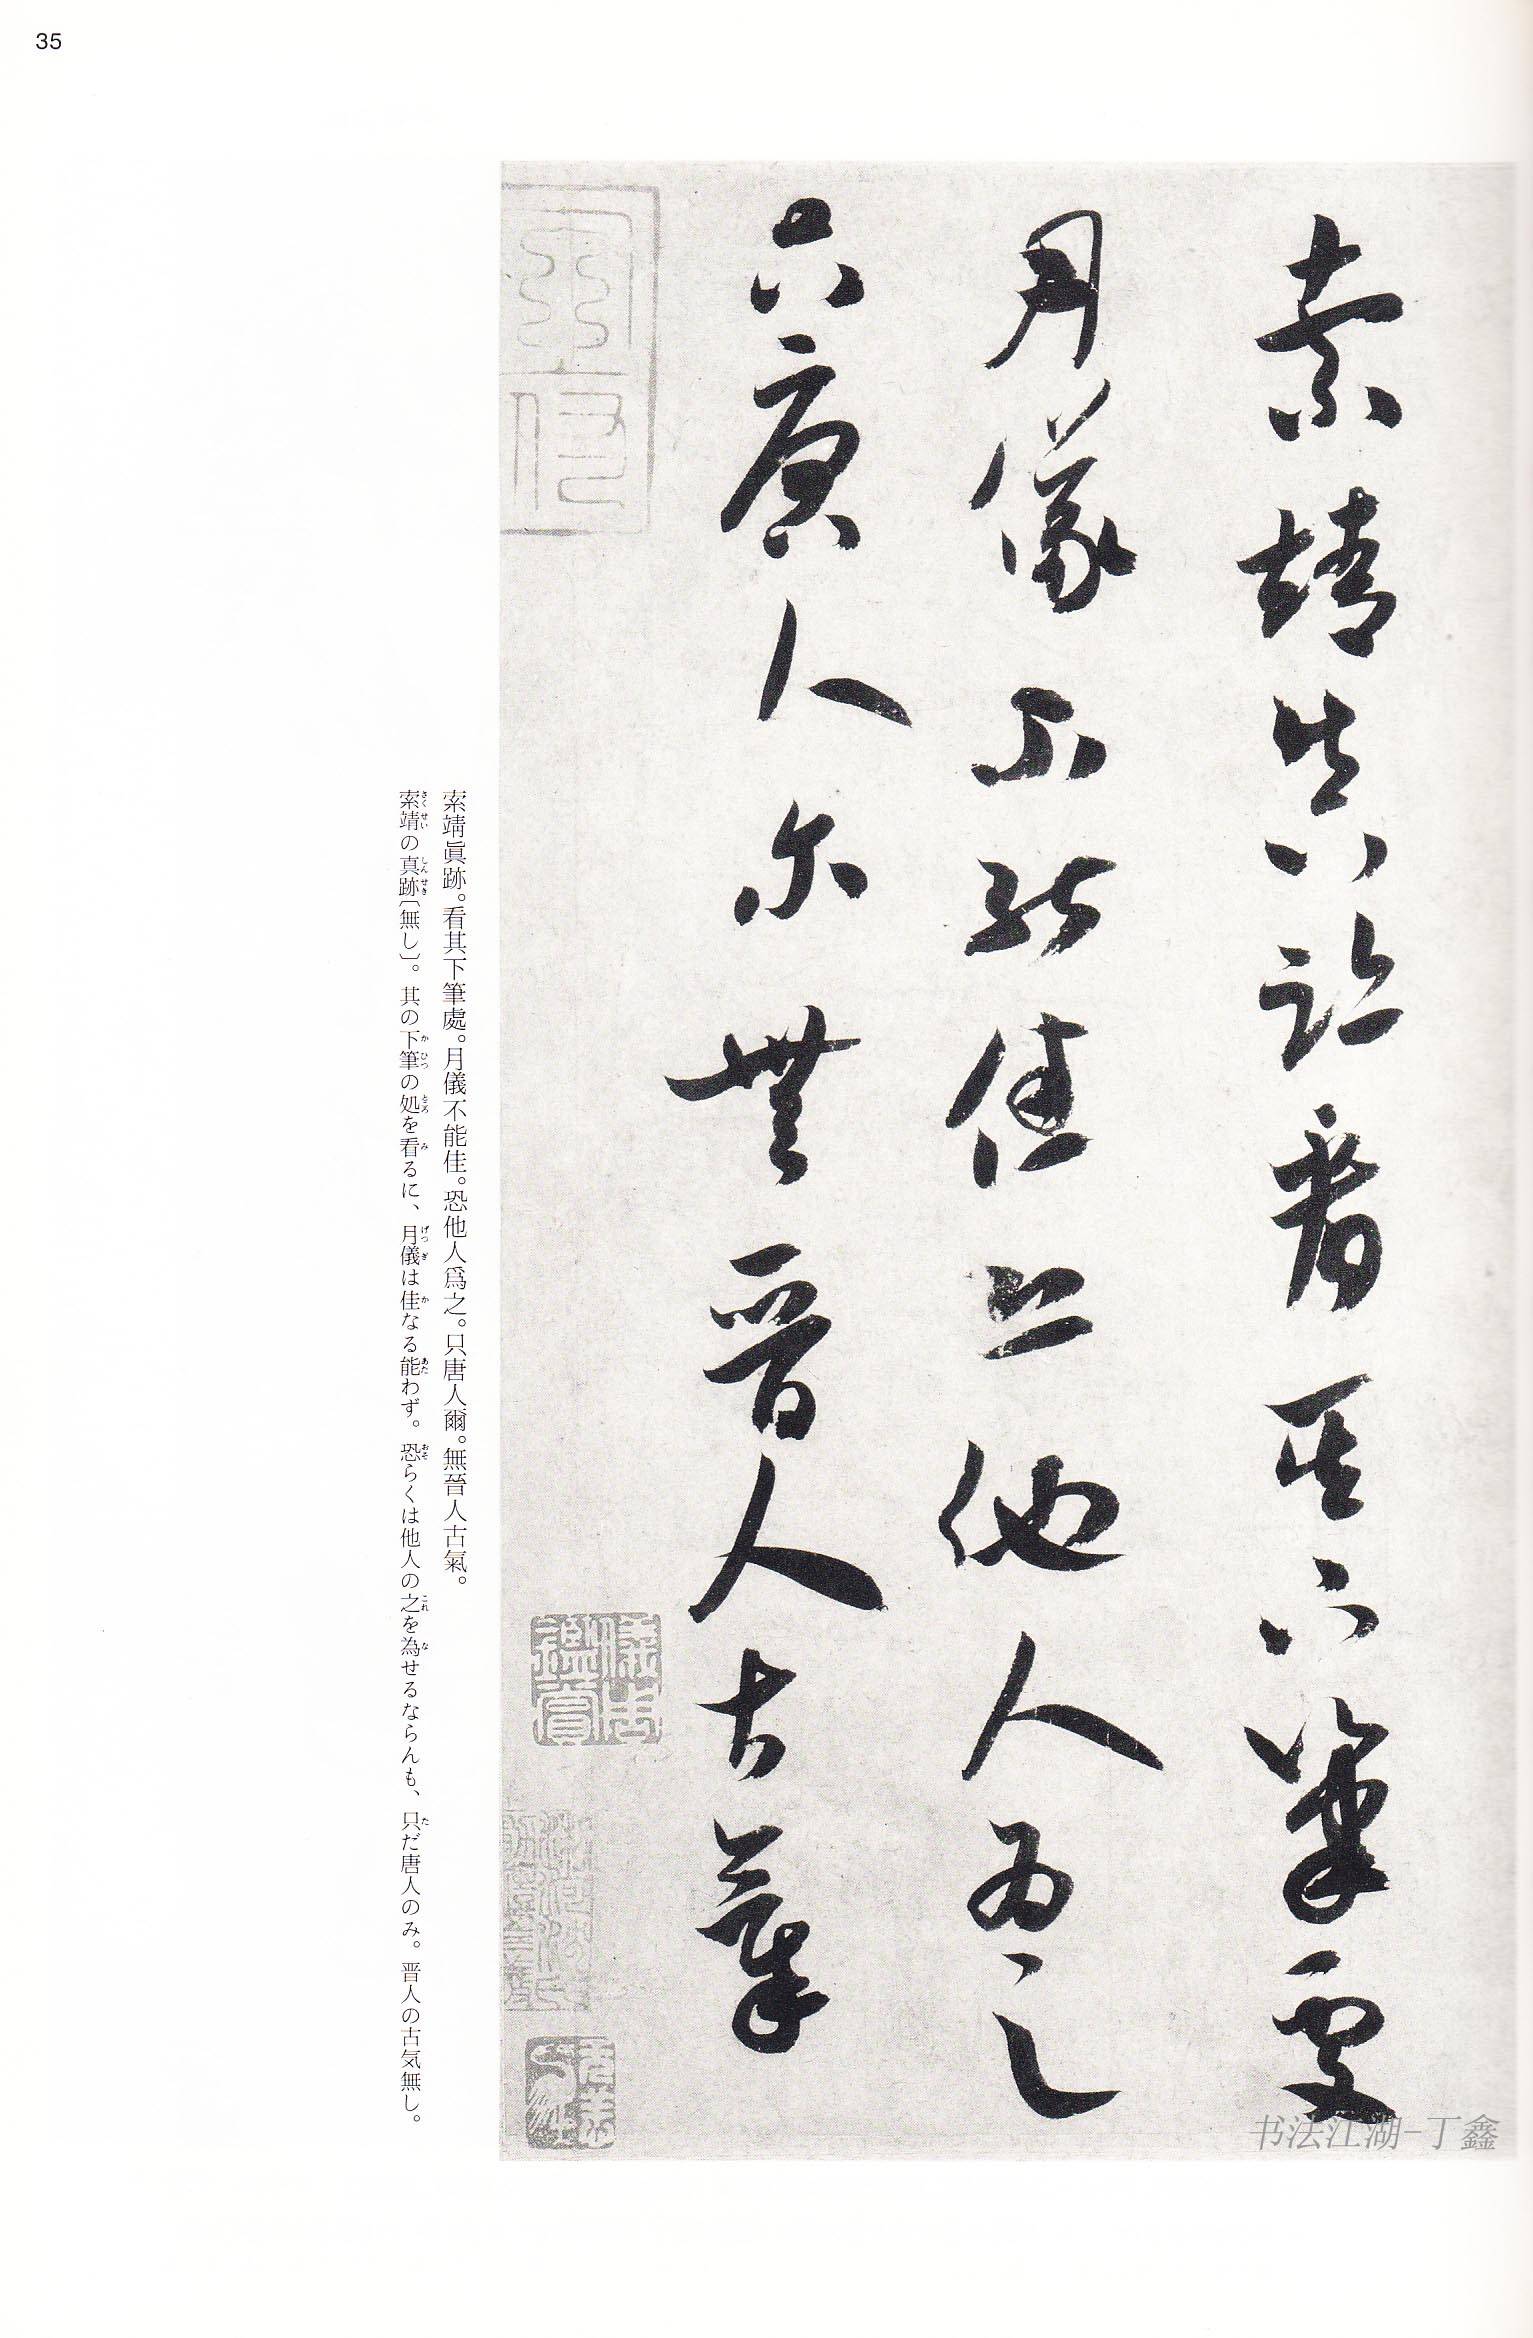 35
索靖真跡看其下筆處
月儀不能佳恐他人為之
只唐人尔無晉人古氣
索靖眞跡。看其下筆處。月儀不能佳。恐他人爲之。只唐人爾。無晉人古氣。
索靖の真跡〔無し〕。其の下筆の処を看るに、月儀は佳なる能わず。恐らくは他人の之を為せるならんも、只だ唐人のみ。晋人の古気無し。
书法江湖-丁鑫